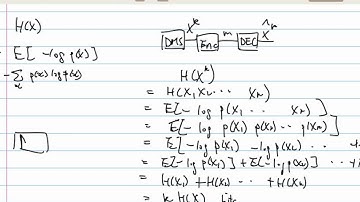 H(X)
E[-log p(x)]
-∑ p(x) log p(x)
x
X^k m X̂^k
DMS Enc DEC
H(X^k)
= H(X1 X2 ... Xk)
= E[-log p(X1 ... Xk)]
= E[-log p(X1) p(X2) ... p(Xk)]
= E[-log p(X1) - log p(X2) ...
= E[-log p(X1)] + E[-log p(X2)] ...
= H(X1) + H(X2) ... + H(Xk)
= k H(X)